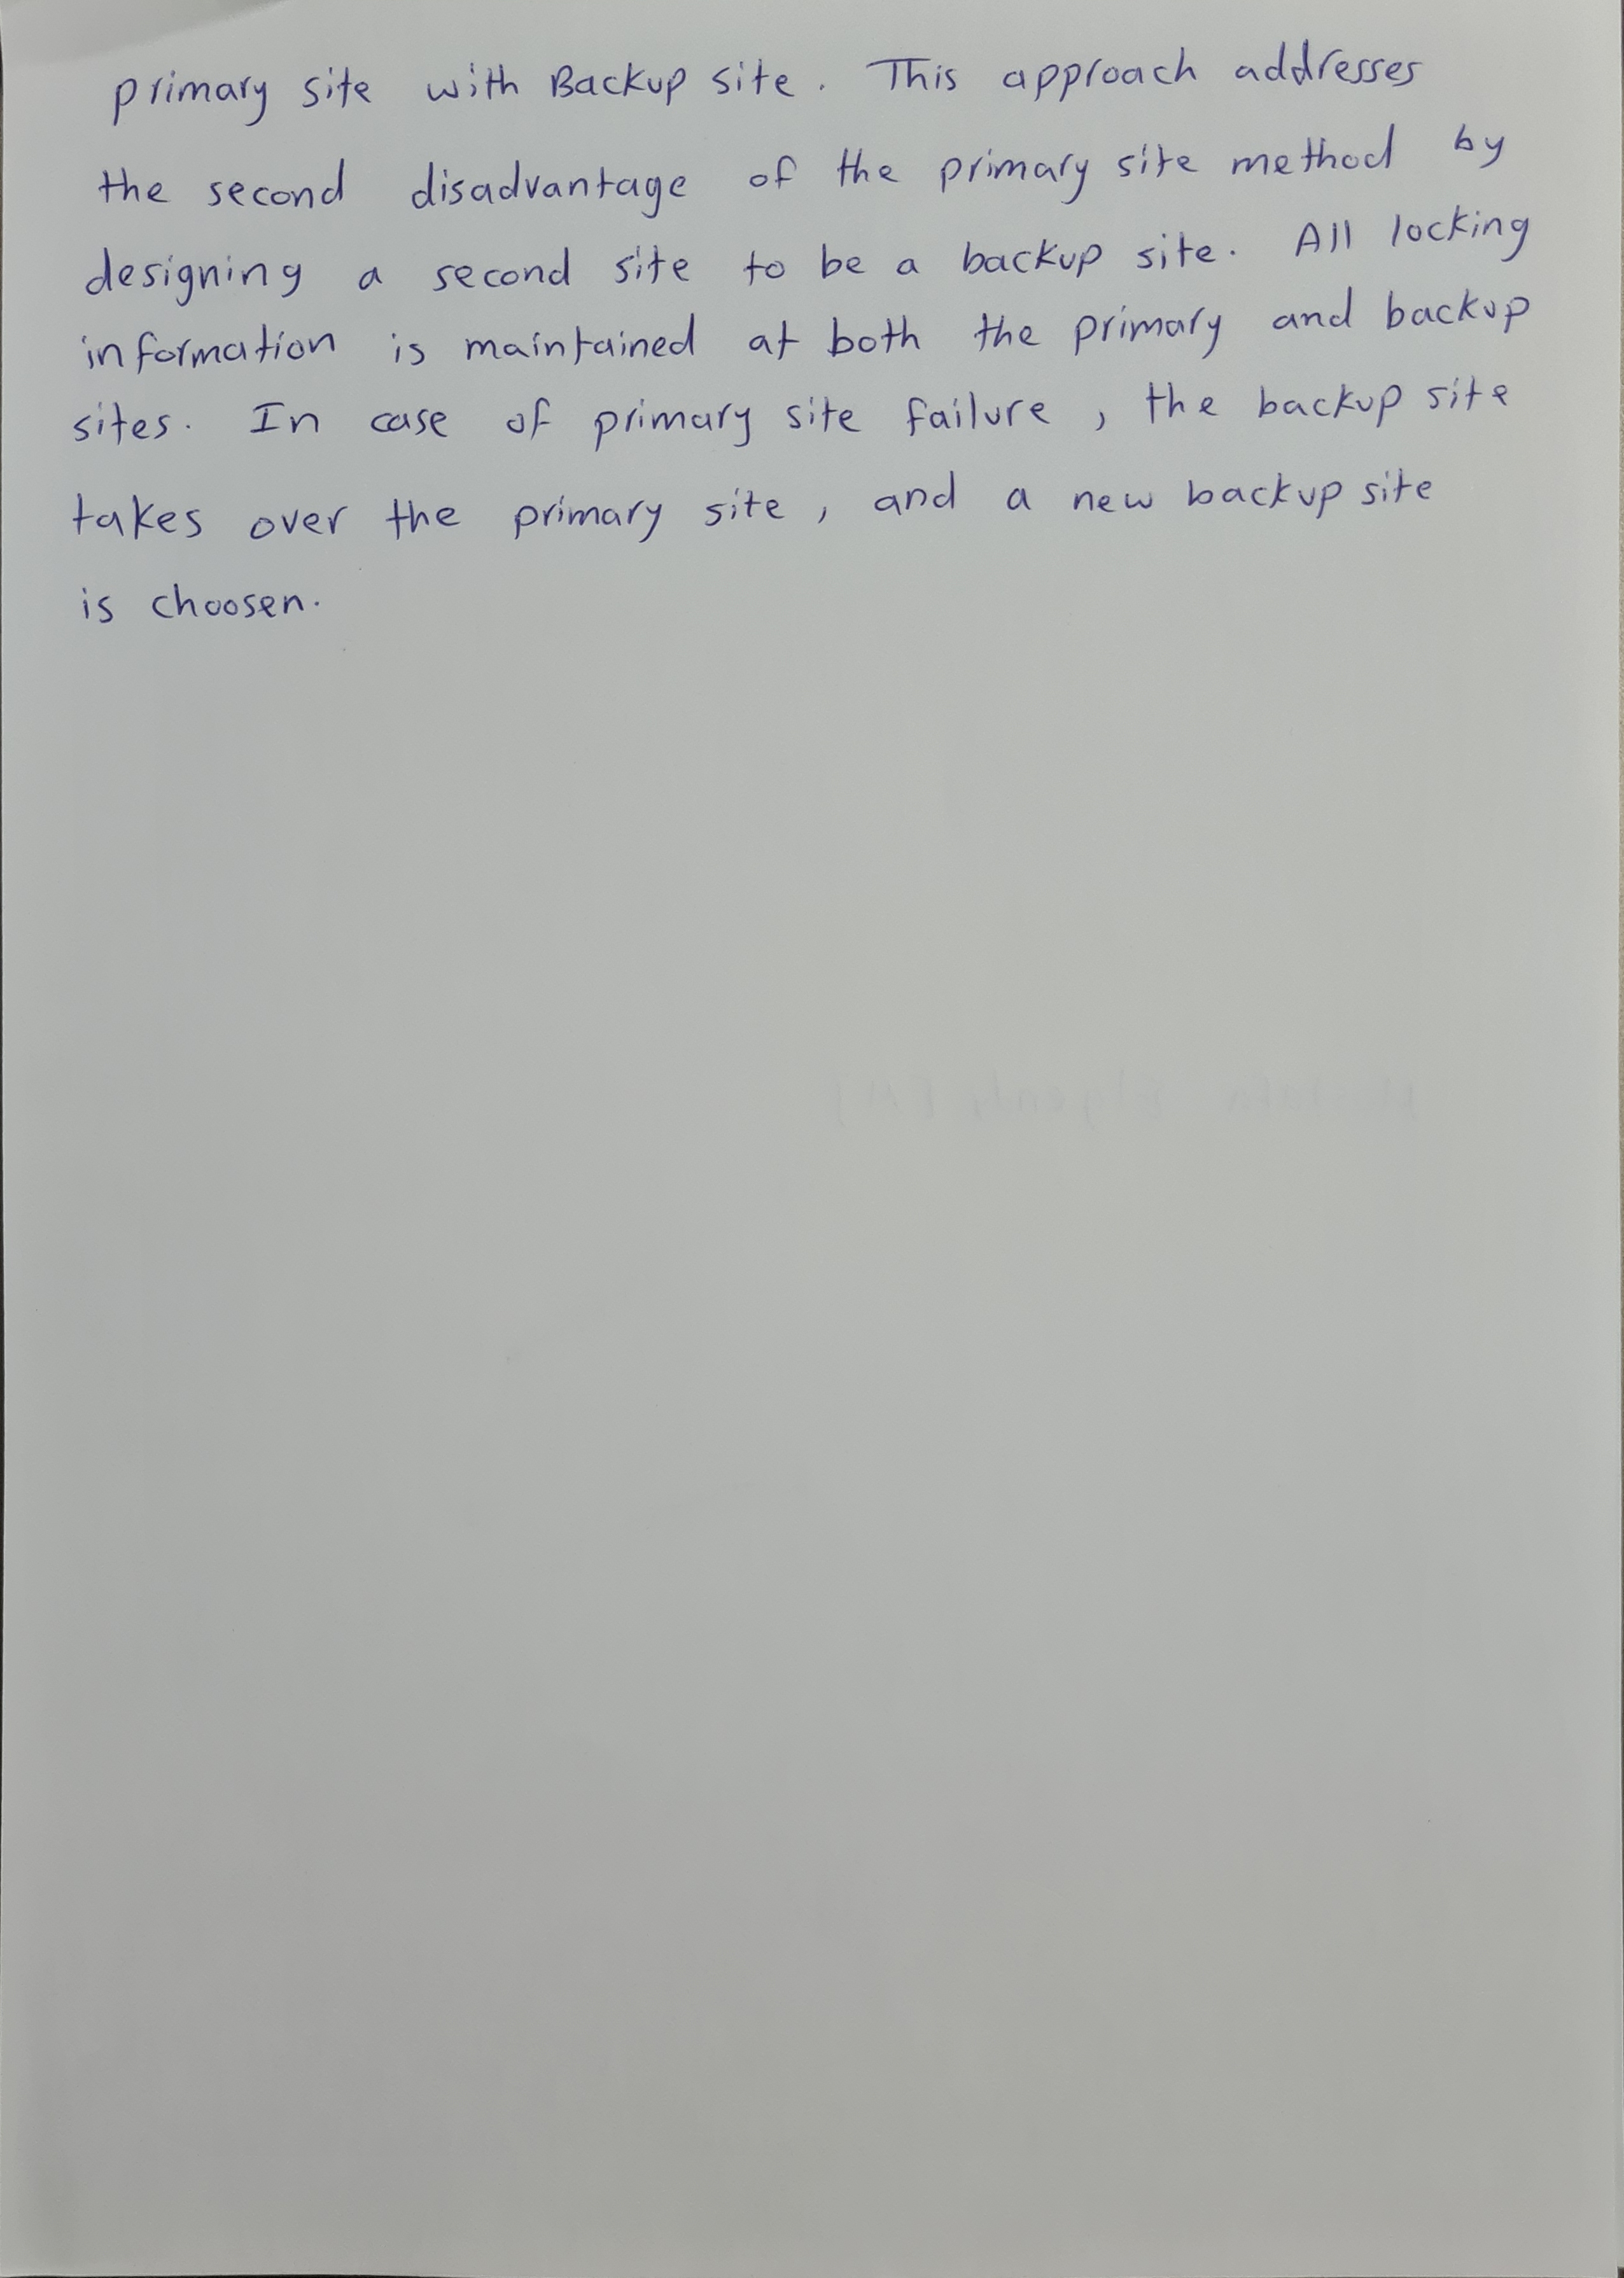 primary site with Backup site. This approach addresses
the second disadvantage of the primary site method by
designing a second site to be a backup site. All locking
information is maintained at both the primary and backup
sites. In case of primary site failure, the backup site
takes over the primary site, and a new backup site
is choosen.